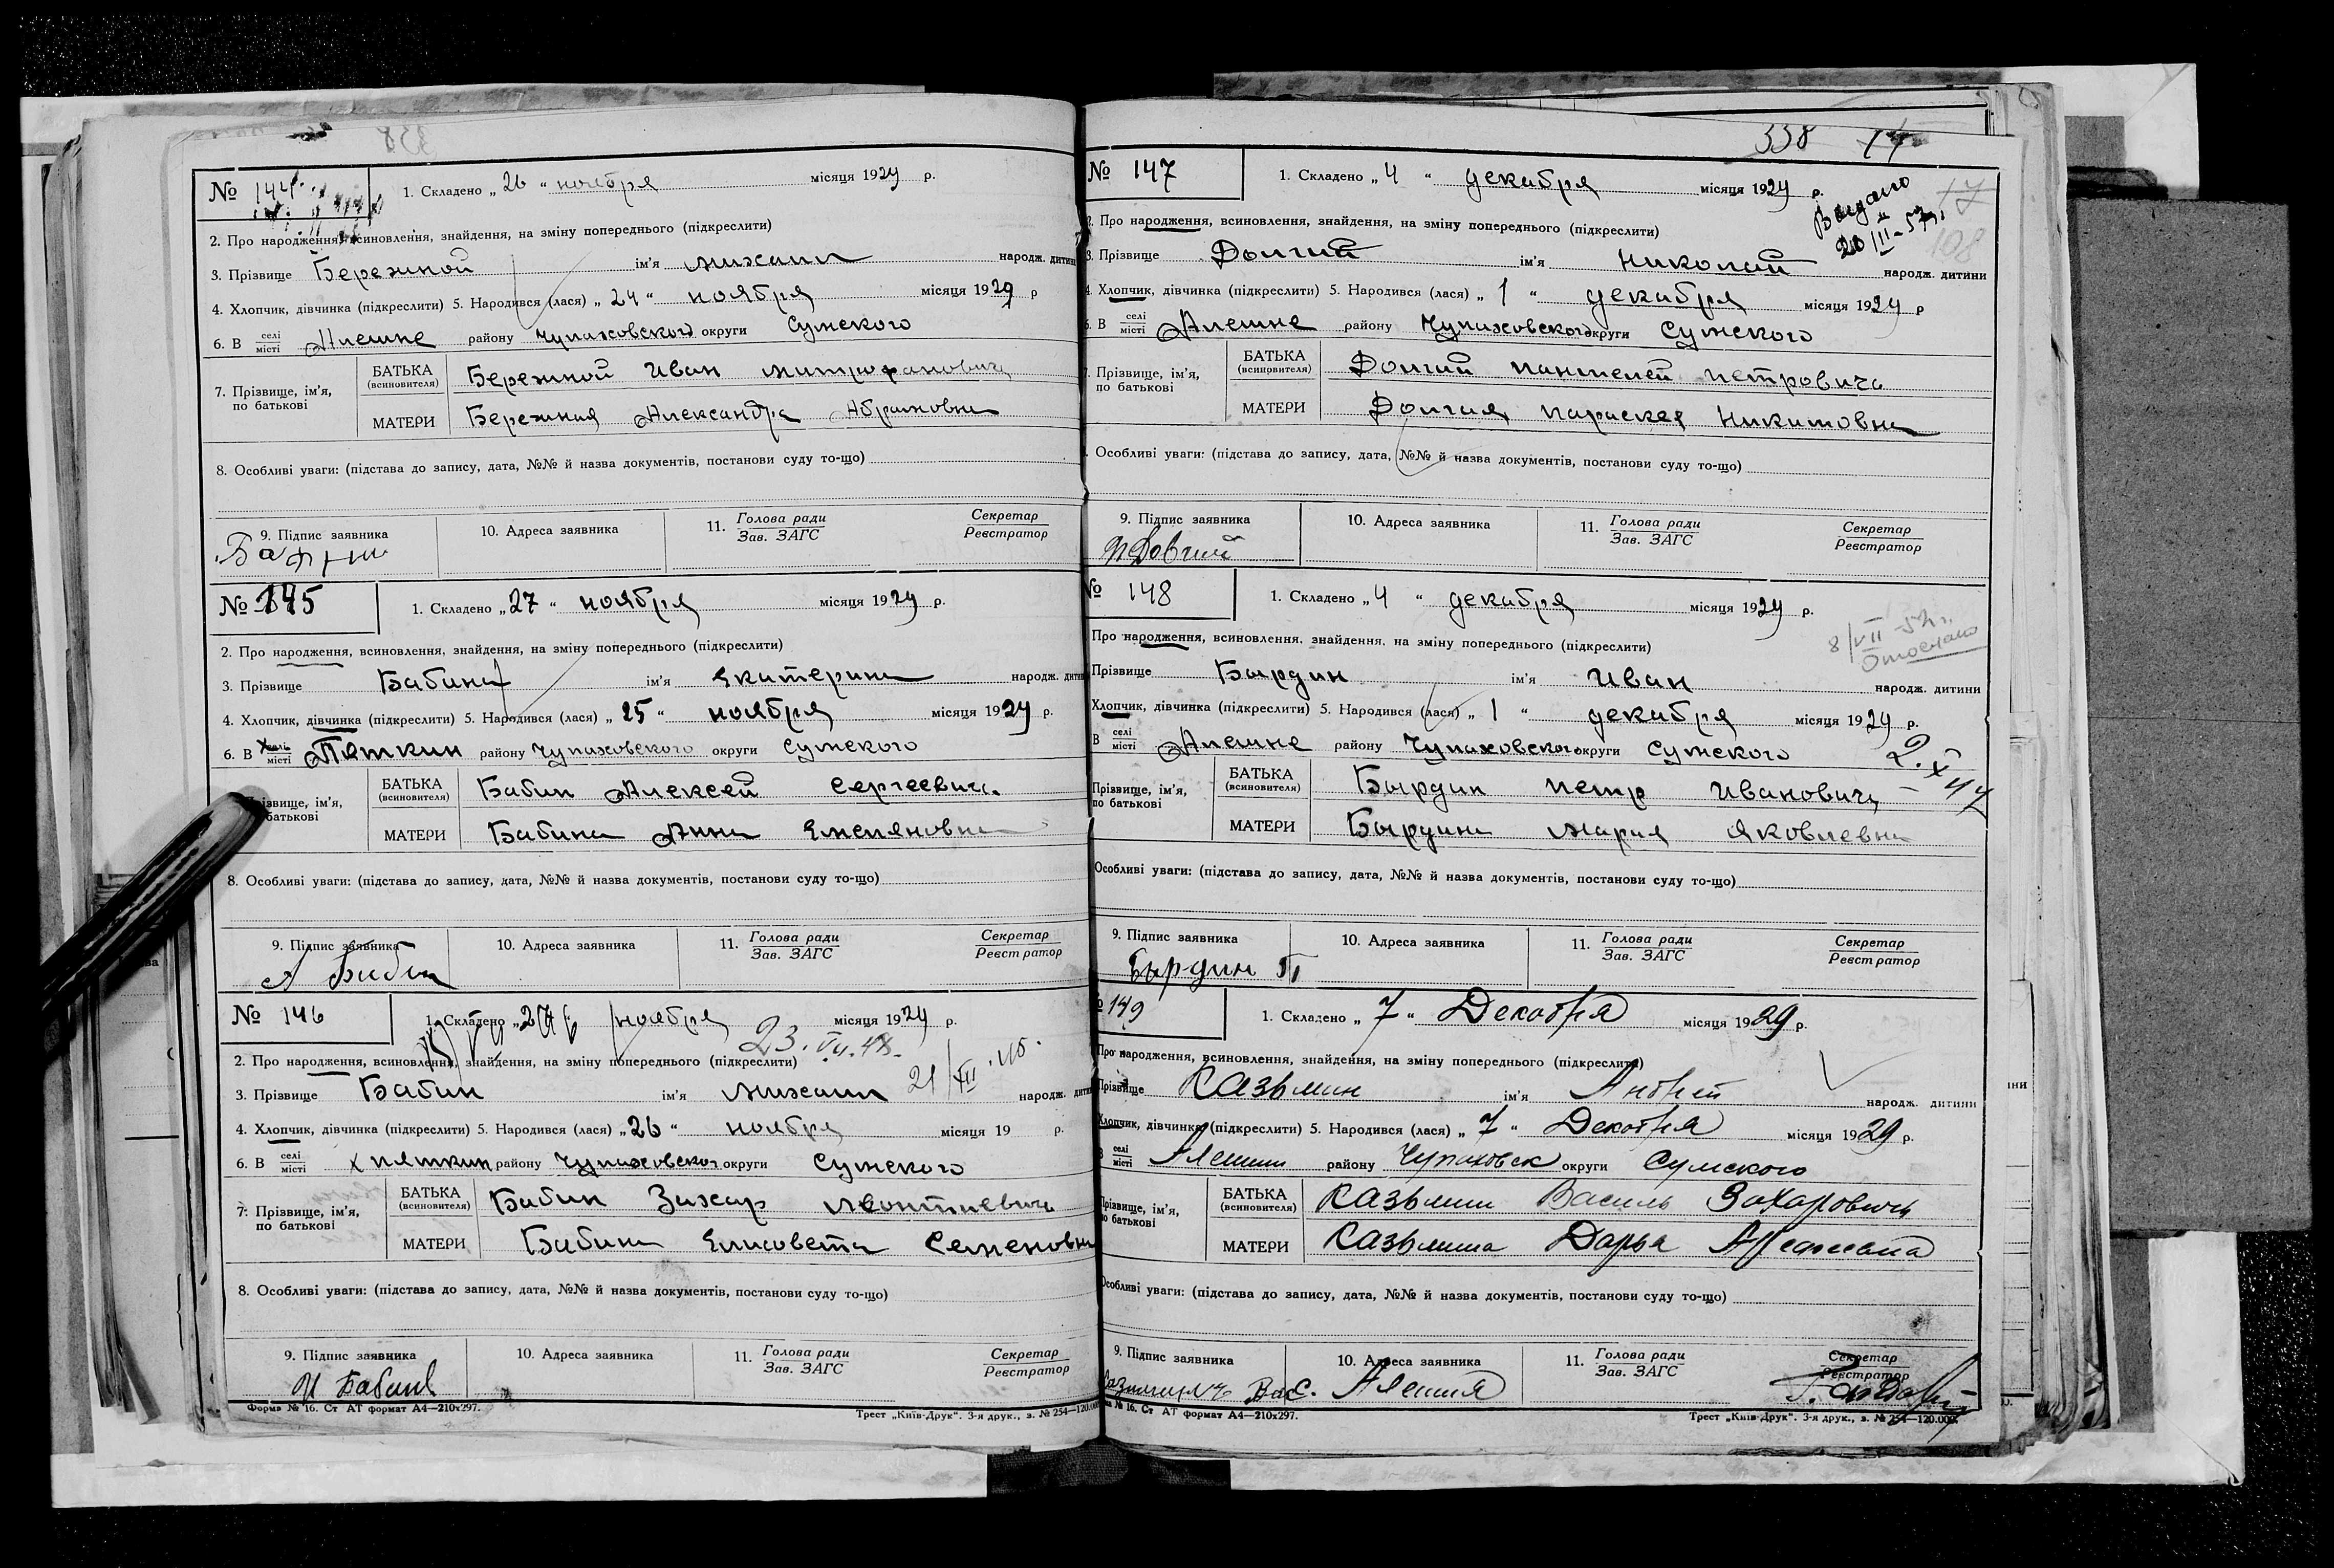 № 144 1. Складено „ 26 “ ноября місяця 1929 р.
2. Про народження, всиновлення, знайдення, на зміну попереднього (підкреслити)
3. Прізвище Бережной ім'я Михаил народж. дитини
4. Хлопчик, дівчинка (підкреслити) 5. Народився (лася) „ 24 “ ноября місяця 1929 р
6. В селі місті Алешне району Чупаховского округи Сумского
7. Прізвище, ім'я, по батькові
БАТЬКА (всиновителя) Бережной Иван Митрофанович
МАТЕРИ Бережная Александра Абрамовна
8. Особливі уваги: (підстава до запису, дата, №№ й назва документів, постанови суду то-що)
9. Підпис заявника 10. Адреса заявника 11. Голова ради Зав. ЗАГС Секретар Реєстратор
№ 145 1. Складено „ 27 “ ноября місяця 1929 р.
2. Про народження, всиновлення, знайдення, на зміну попереднього (підкреслити)
3. Прізвище Бабина ім'я Екатерина народж. дитини
4. Хлопчик, дівчинка (підкреслити) 5. Народився (лася) „ 25 “ ноября місяця 1929 р.
6. В селі місті Пяткин району Чупаховского округи Сумского
Прізвище, ім'я, батькові
БАТЬКА (всиновителя) Бабин Алексей Сергеевичь
МАТЕРИ Бабина Анна Емельяновна
8. Особливі уваги: (підстава до запису, дата, №№ й назва документів, постанови суду то-що)
9. Підпис заявника 10. Адреса заявника 11. Голова ради Зав. ЗАГС Секретар Реєстратор
А Бабин
№ 146 1. Складено „ ноября місяця 1929 р.
23.VII.48.
2. Про народження, всиновлення, знайдення, на зміну попереднього (підкреслити)
3. Прізвище Бабин ім'я Михаил 21/XII. 45. народж. дитини
4. Хлопчик, дівчинка (підкреслити) 5. Народився (лася) „ 26 “ ноября місяця 19 р.
6. В селі місті х Пяткин району Чупаховского округи Сумского
7. Прізвище, ім'я, по батькові
БАТЬКА (всиновителя) Бабин Захар Леонтиевичь
МАТЕРИ Бабина Елисовета Семеновна
8. Особливі уваги: (підстава до запису, дата, №№ й назва документів, постанови суду то-що)
9. Підпис заявника 10. Адреса заявника 11. Голова ради Зав. ЗАГС Секретар Реєстратор
Форма № 16. Ст АТ формат А4—210х297. Трест „Київ-Друк“. 3-я друк., з. № 254—120.000
338 17
№ 147 1. Складено „ 4 “ декабря місяця 1929 р.
Выдано 20/III-57 г.
17
108
2. Про народження, всиновлення, знайдення, на зміну попереднього (підкреслити)
3. Прізвище Долгий ім'я Николай народж. дитини
4. Хлопчик, дівчинка (підкреслити) 5. Народився (лася) „ 1 “ декабря місяця 1929 р
6. В селі місті Алешне району Чупаховского округи Сумского
Прізвище, ім'я, по батькові
БАТЬКА (всиновителя) Долгий Пантелей Петровичь
МАТЕРИ Долгая Параскея Никитовна
Особливі уваги: (підстава до запису, дата, №№ й назва документів, постанови суду то-що)
9. Підпис заявника 10. Адреса заявника 11. Голова ради Зав. ЗАГС Секретар Реєстратор
П Довгий
№ 148 1. Складено „ 4 “ декабря місяця 1929 р.
8/VII-52 г. Отослано
Про народження, всиновлення, знайдення, на зміну попереднього (підкреслити)
Прізвище Бырдин ім'я Иван народж. дитини
Хлопчик, дівчинка (підкреслити) 5. Народився (лася) „ 1 “ декабря місяця 1929 р.
В селі місті Алешне району Чупаховского округи Сумского
2.X 44
Прізвище, ім'я, по батькові
БАТЬКА (всиновителя) Бырдин Петр Ивановичь
МАТЕРИ Бырдина Мария Яковлевна
Особливі уваги: (підстава до запису, дата, №№ й назва документів, постанови суду то-що)
9. Підпис заявника 10. Адреса заявника 11. Голова ради Зав. ЗАГС Секретар Реєстратор
Бырдин П
№ 149 1. Складено „ 7 “ Декабря місяця 1929 р.
Про народження, всиновлення, знайдення, на зміну попереднього (підкреслити)
Прізвище Казьмин ім'я Андрей народж. дитини
Хлопчик, дівчинка (підкреслити) 5. Народився (лася) „ 7 “ Декабря місяця 1929 р.
В селі місті Алешни району Чупаховск округи Сумского
Прізвище, ім'я, по батькові
БАТЬКА (всиновителя) Казьмин Василь Захарович
МАТЕРИ Казьмина Дарья
Особливі уваги: (підстава до запису, дата, №№ й назва документів, постанови суду то-що)
9. Підпис заявника 10. Адреса заявника 11. Голова ради Зав. ЗАГС Секретар Реєстратор
с. Алешня
№ 16. Ст АТ формат А4—210х297. Трест „Київ-Друк“. 3-я друк., з. № 254—120.000